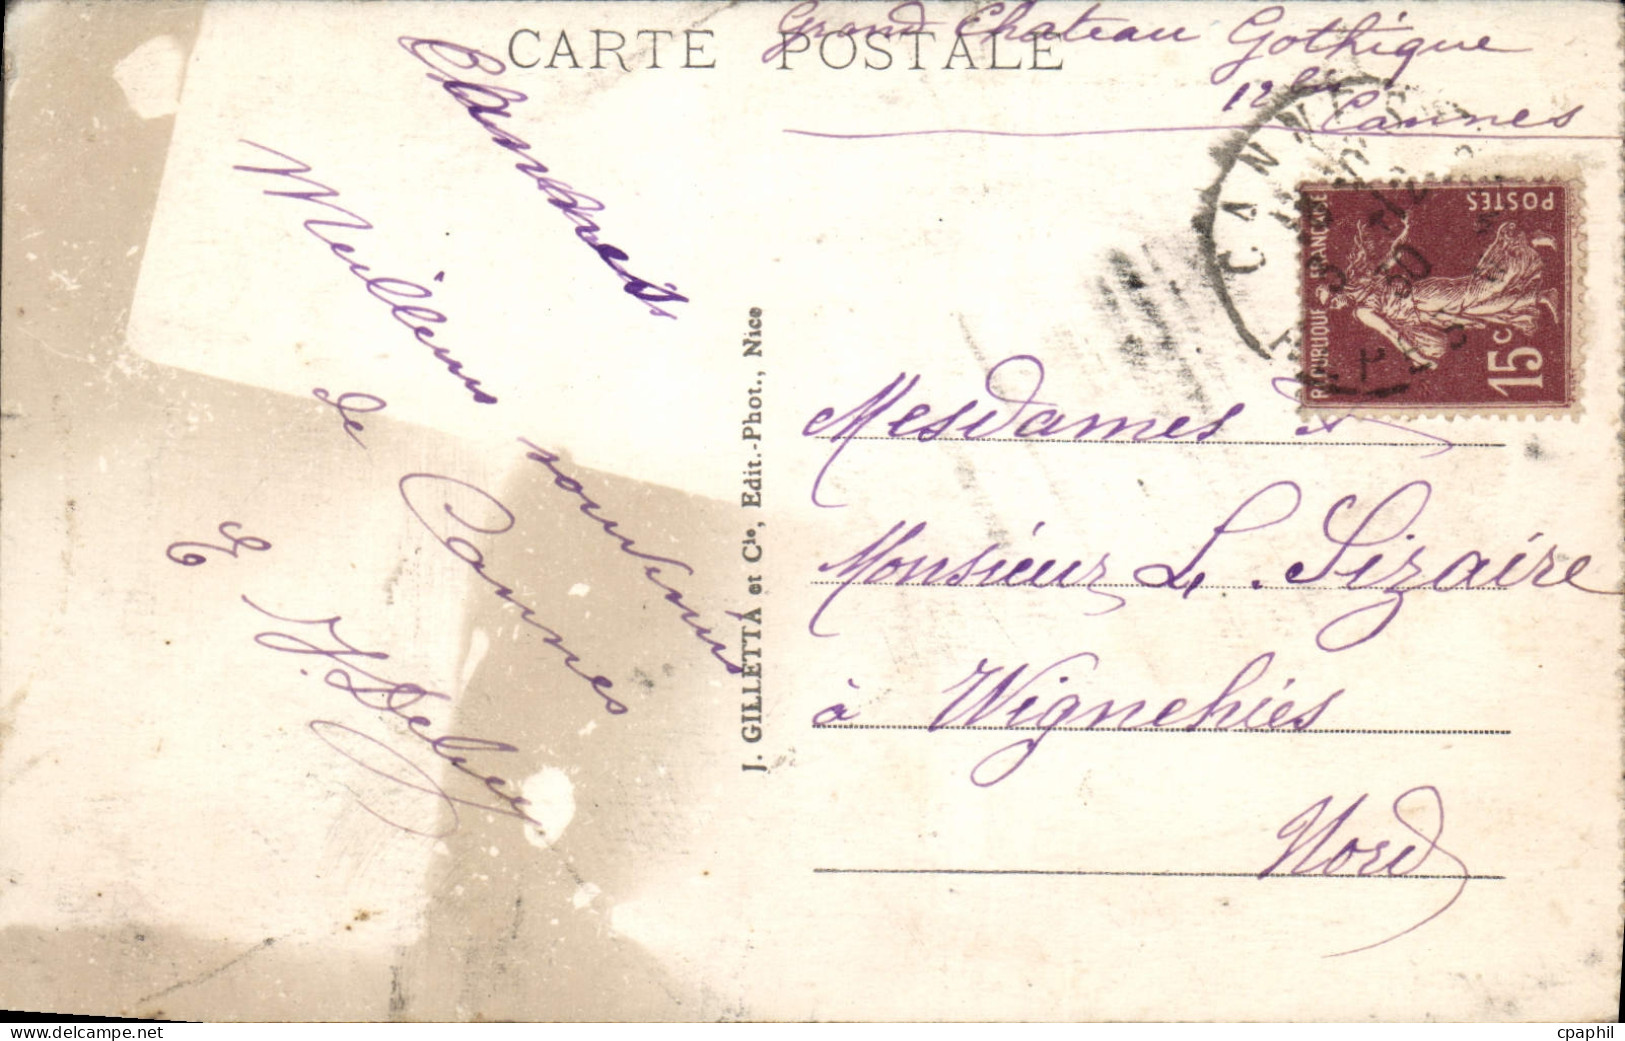 CARTE POSTALE
Grand Chateau Gothique
12
Cannes
CANNES
RÉPUBLIQUE FRANÇAISE
POSTES
15c
Meilleurs souvenirs
de Cannes
J. GILLETTA et Cie, Edit.-Phot., Nice
Mesdames &
Monsieur L. Sizaire
à Wignehies
Nord
www.delcampe.net
cpaphil